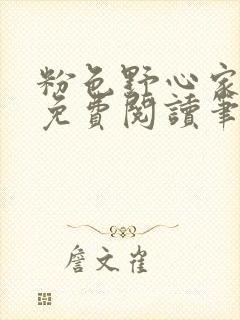 粉色野心家
免費閱讀筆
詹文雀